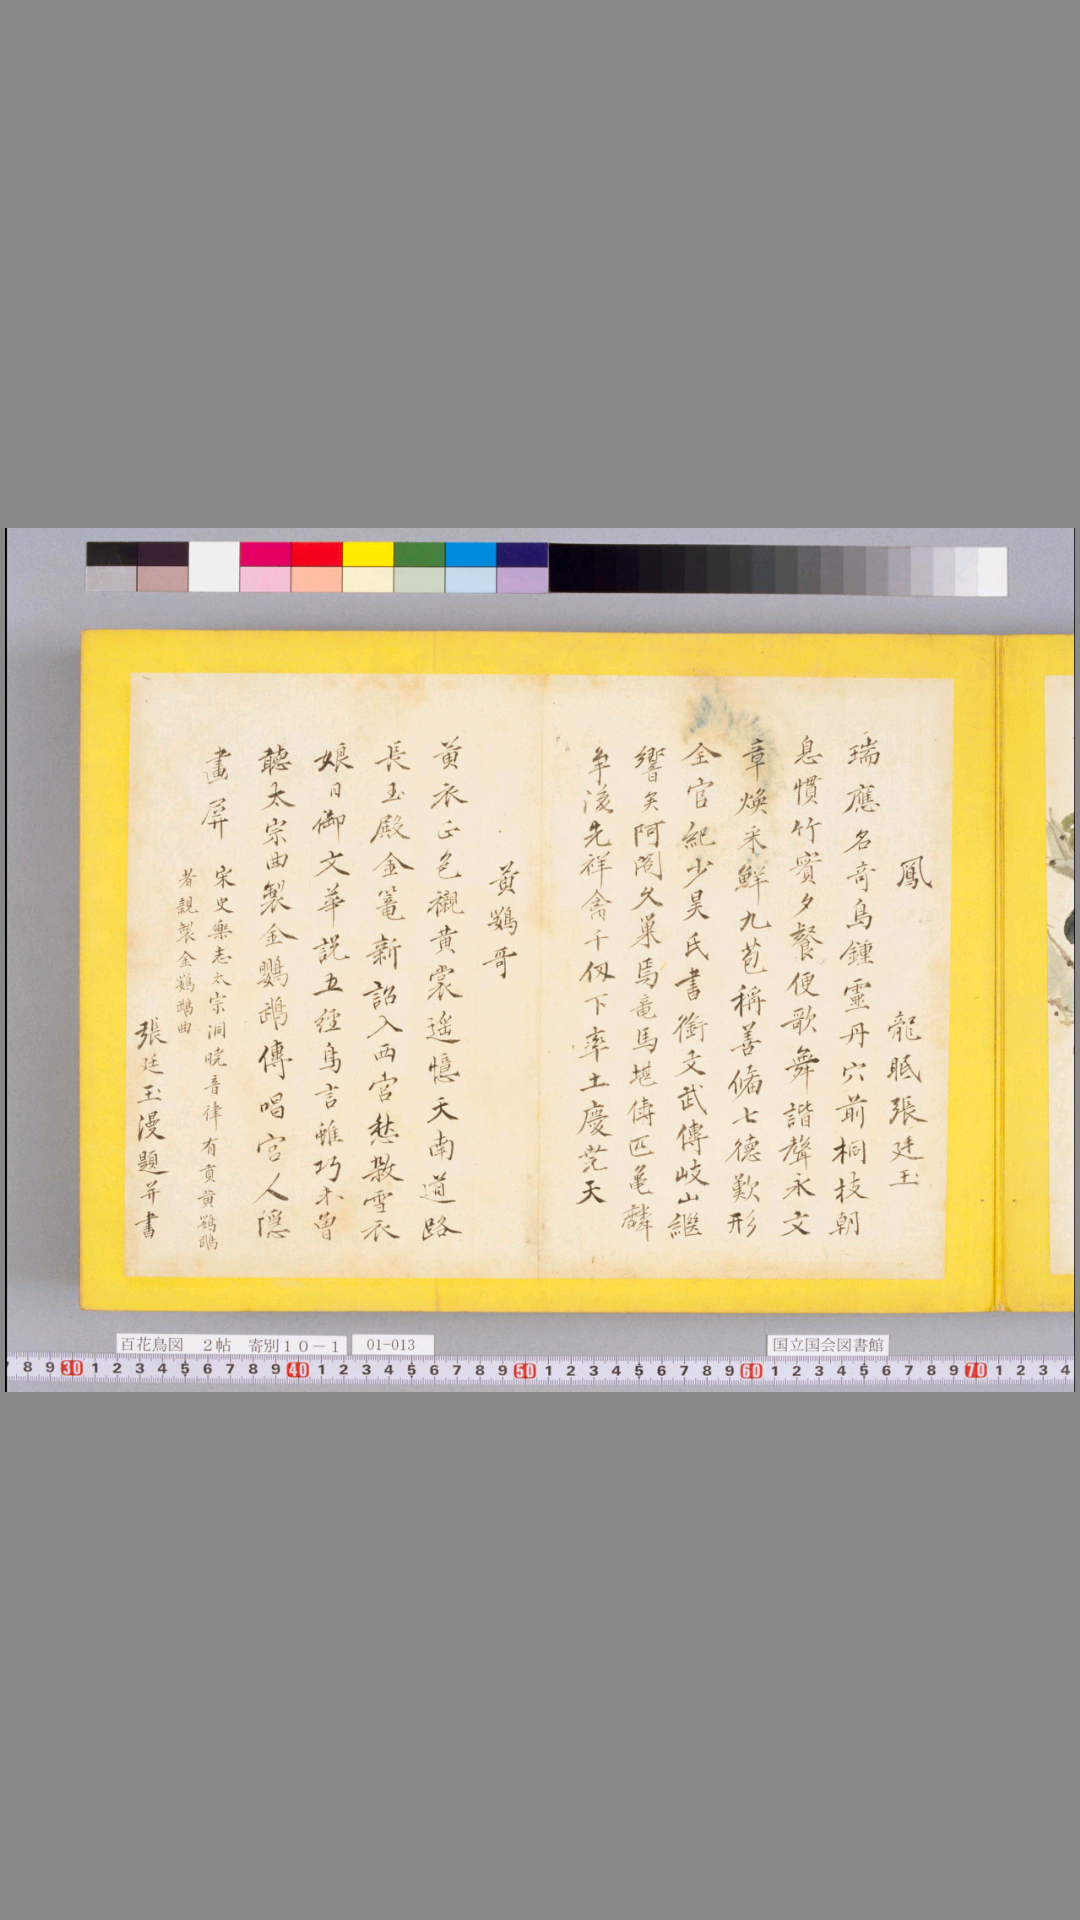 鳳
龍眠張廷玉
瑞應名奇鳥鍾靈丹穴前桐枝朝
息慣竹實夕餐便歌舞諧聲永文
章煥采鮮九苞稱善備七德歎形
全官紀少昊氏書銜文武傳岐山繼
響矣阿閣久巢焉竜馬堪儔匹亀麟
争後先祥禽千仭下率土慶堯天
黄鸚哥
黄衣正色襯黄裳遥憶天南道路
長玉殿金籠新詔入西宮愁殺雪衣
娘日御文華説五經鳥言雖巧未曾
聴太宗曲製金鸚鵡傳唱宮人隱
畫屏
宋史樂志太宗洞曉音律有貢黄鸚鵡
者親製金鸚鵡曲
張廷玉漫題并書
百花鳥図 2帖 寄別10-1
01-013
国立国会図書館
8 9 30 1 2 3 4 5 6 7 8 9 40 1 2 3 4 5 6 7 8 9 50 1 2 3 4 5 6 7 8 9 60 1 2 3 4 5 6 7 8 9 70 1 2 3 4